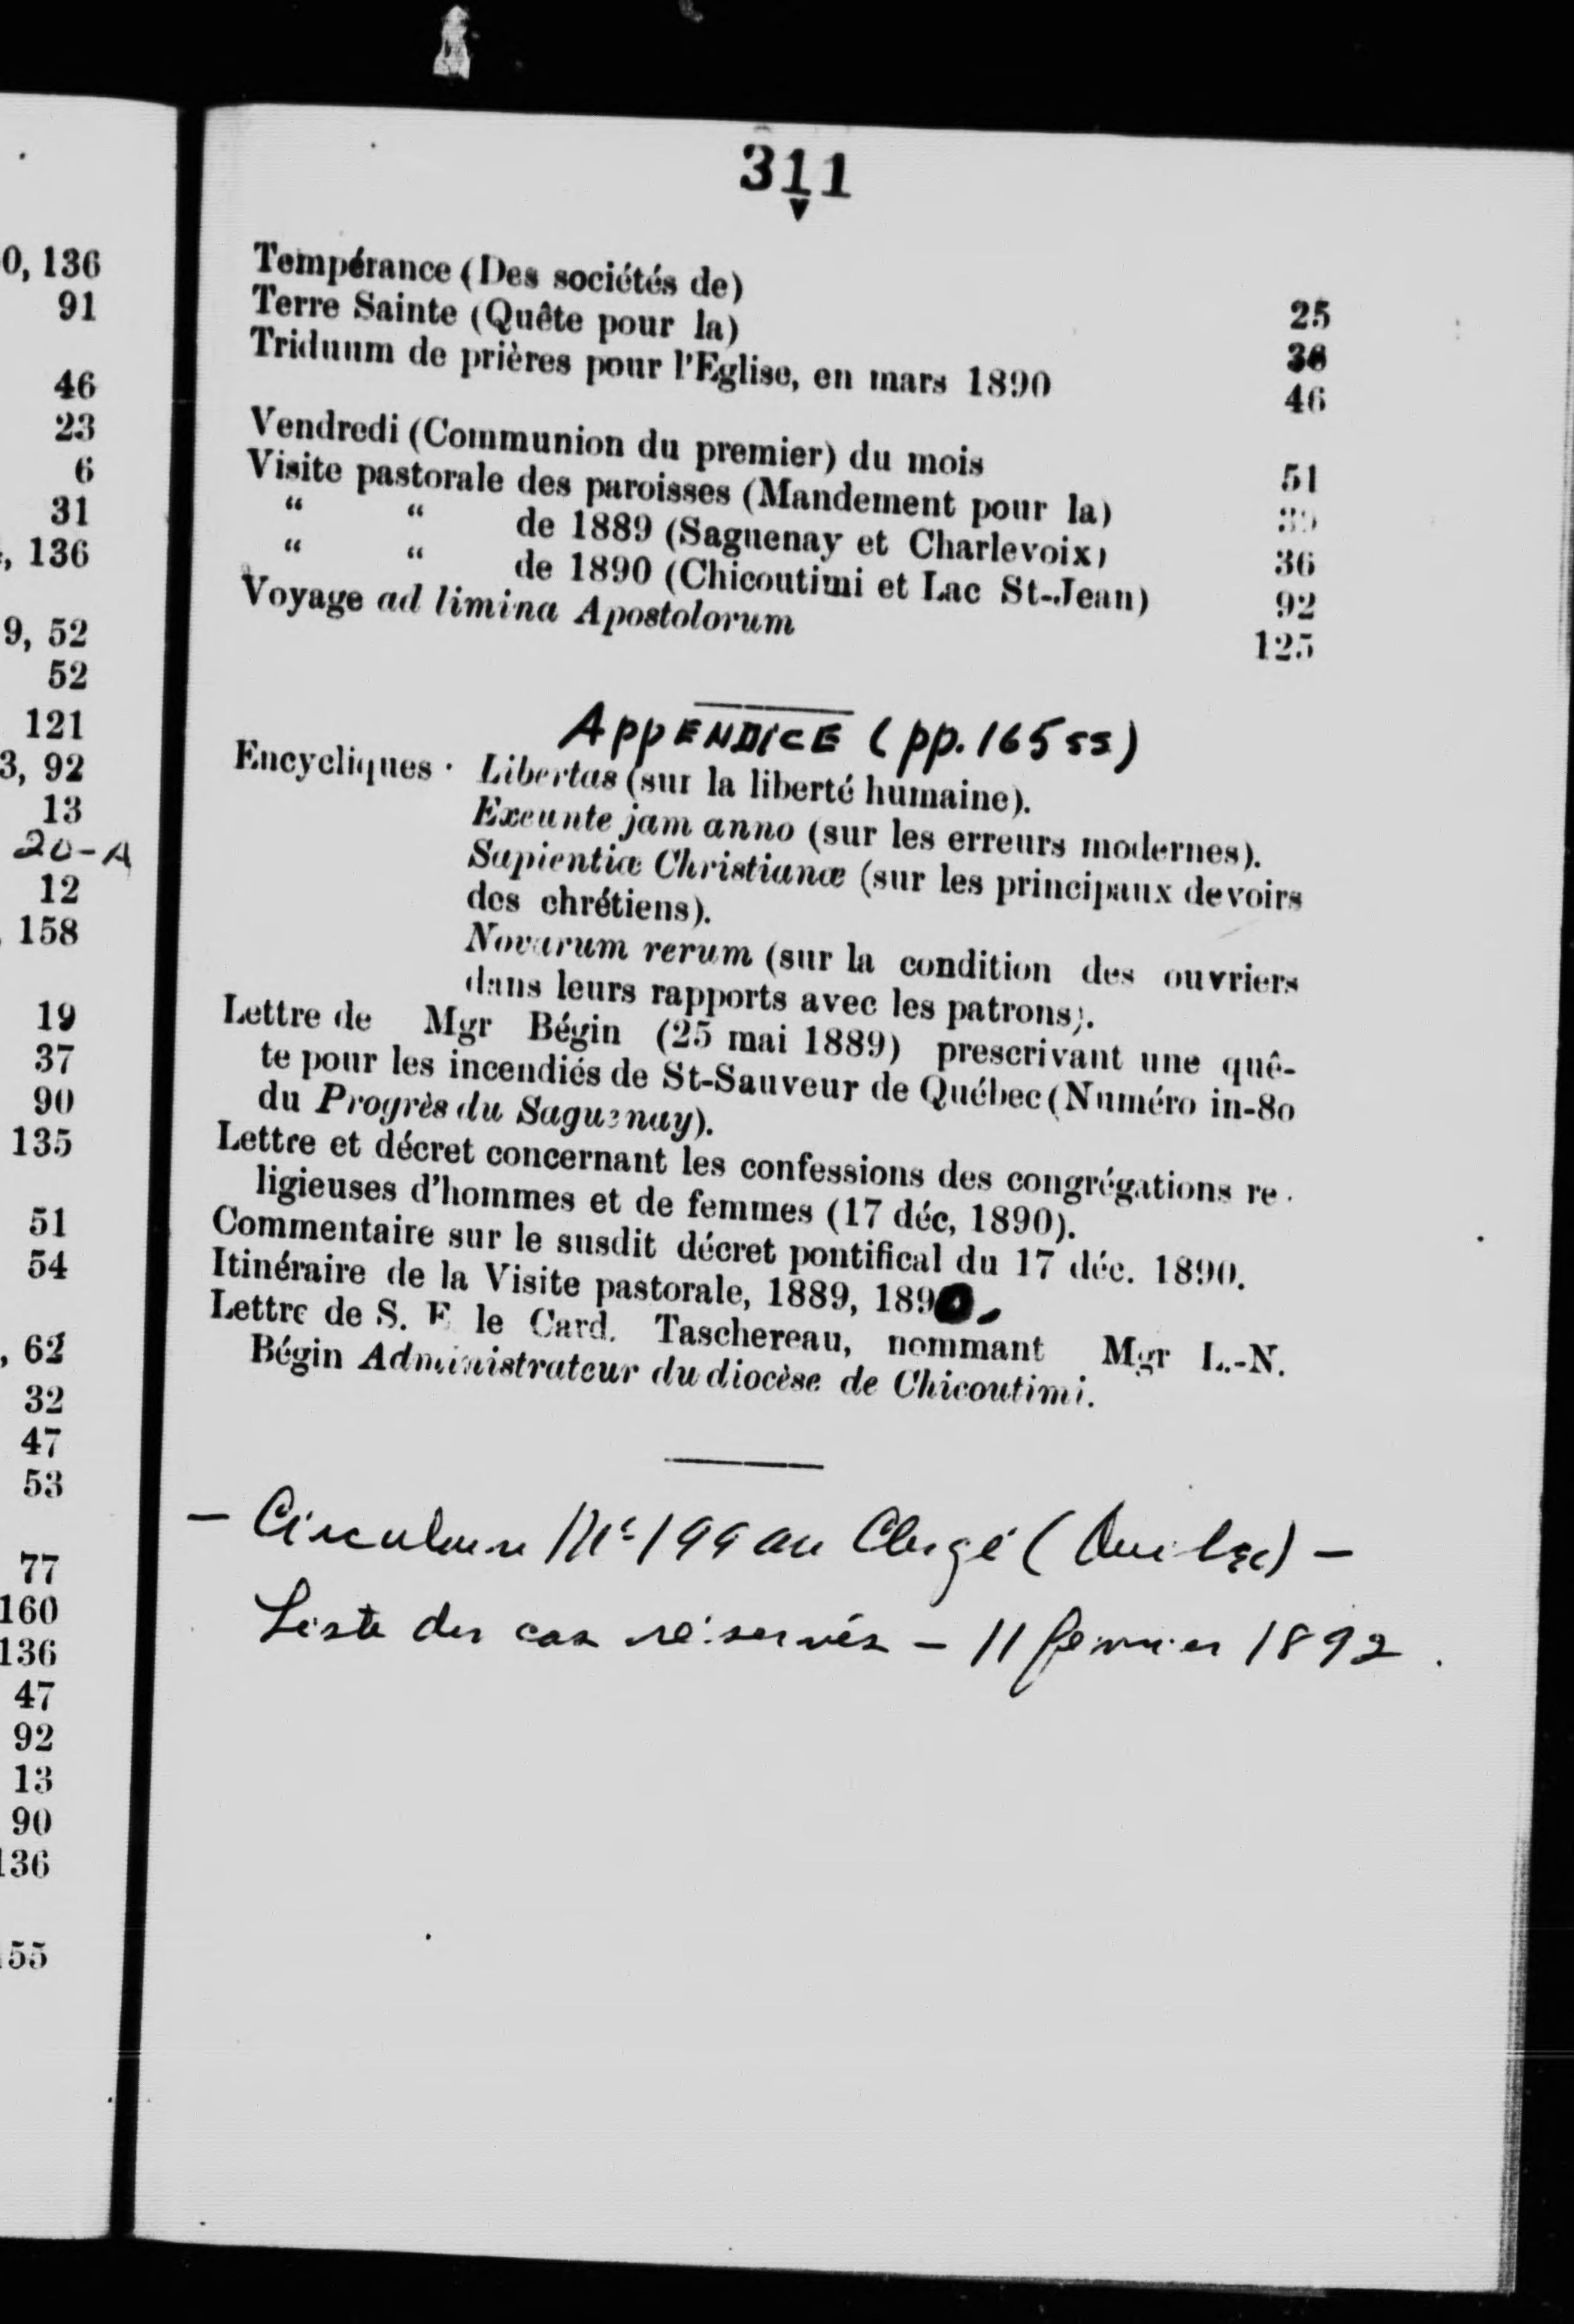 0, 136
91
46
23
6
31
, 136
9, 52
52
121
3, 92
13
20-A
12
158
19
37
90
135
51
54
, 62
32
47
53
77
160
136
47
92
13
90
136
55
311
Tempérance (Des sociétés de) 25
Terre Sainte (Quête pour la) 36
Triduum de prières pour l'Eglise, en mars 1890 46
Vendredi (Communion du premier) du mois 51
Visite pastorale des paroisses (Mandement pour la) 39
“ “ de 1889 (Saguenay et Charlevoix) 36
“ “ de 1890 (Chicoutimi et Lac St-Jean) 92
Voyage ad limina Apostolorum 125
APPENDICE (pp. 165 ss)
Encycliques · Libertas (sur la liberté humaine).
Exeunte jam anno (sur les erreurs modernes).
Sapientiæ Christianæ (sur les principaux devoirs
des chrétiens).
Novarum rerum (sur la condition des ouvriers
dans leurs rapports avec les patrons).
Lettre de Mgr Bégin (25 mai 1889) prescrivant une quê-
te pour les incendiés de St-Sauveur de Québec (Numéro in-8o
du Progrès du Saguenay).
Lettre et décret concernant les confessions des congrégations re-
ligieuses d'hommes et de femmes (17 déc, 1890).
Commentaire sur le susdit décret pontifical du 17 déc. 1890.
Itinéraire de la Visite pastorale, 1889, 1890.
Lettre de S. E le Card. Taschereau, nommant Mgr L.-N.
Bégin Administrateur du diocèse de Chicoutimi.
– Circulaire No 199 au Clergé (Québec) –
Liste des cas réservés – 11 février 1892.